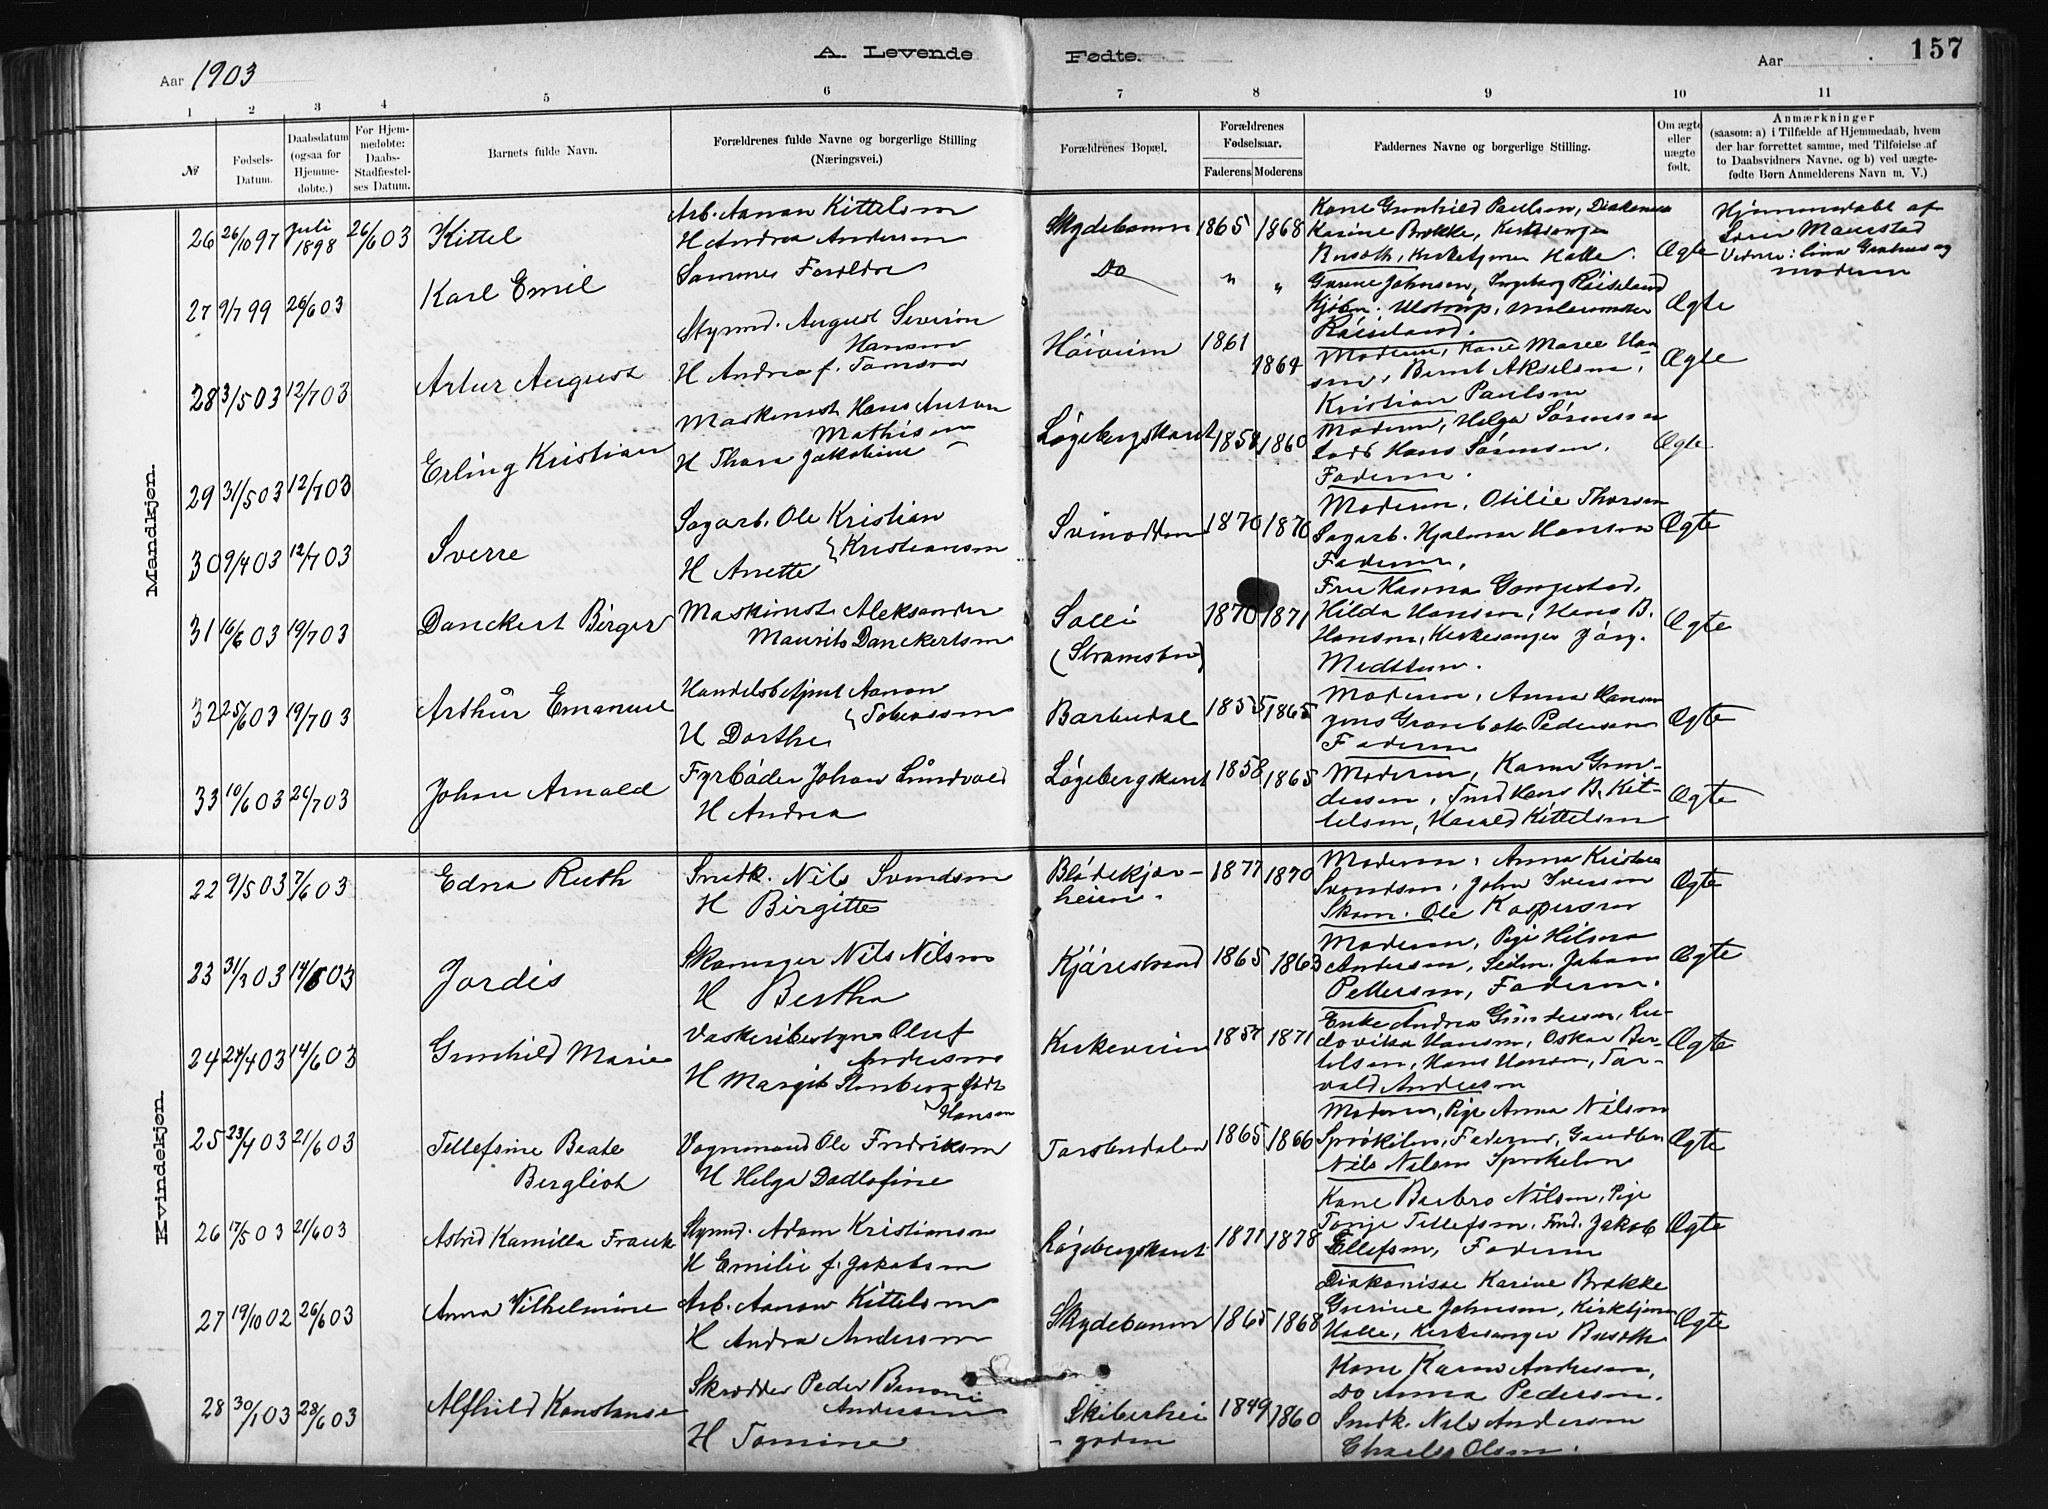 A. Levende Fødte.
157
Aar 1903
Aar
1 2 3 4 5 6 7 8 9 10 11
№
Fødsels-Datum.
Daabsdatum (ogsaa for Hjemme-døbte.)
For Hjem-medøbte: Daabs-Stadfæstel-ses Datum.
Barnets fulde Navn.
Forældrenes fulde Navne og borgerlige Stilling (Næringsvei.)
Forældrenes Bopæl.
Forældrenes Fødselsaar.
Faderens Moderens
Faddernes Navne og borgerlige Stilling.
Om ægte eller uægte født.
Anmærkninger
(saasom: a) i Tilfælde af Hjemmedaab, hvem der har forrettet samme, med Tilføielse af to Daabsvidners Navne. og b) ved uægte-fødte Børn Anmelderens Navn m. V.)
Mandkjøn.
26 26/10 97 Juli 1898 26/6 03 Kittel
Arb. Aanon Kittelsen
H Andrea Andersen
Skydebanen 1865 1868
Kone Gunhild Paulsen, Diakonisse
Karine Brække, Kirkesanger
Busoth, Kirketjener Halle.
Ægte
Hjemmedøbt af
Vidner:
moderen
27 9/7 99 26/6 03 Karl Emil
Sammes Forældre
Do " "
Gurine Johnsen, Ingeborg Røiseland
Kjøbm. Ulstrup, Malermester
Røiseland.
Ægte
28 3/5 03 12/7 03 Artur August
Styrmd. August Severin
Hansen
H Andrea f. Tomsen
Høiveien 1861 1864
Moderen, Kone Maree Han
sen, Bernt Akselsen,
Kristian Paulsen
Ægte
29 31/5 03 12/7 03 Erling Kristian
Maskinist Hans Anton
Mathisen
H Thora Jakobine
Løgebergskaret 1858 1860
Moderen, Helga Sørensen
Lods Hans Sørensen.
Faderen.
Ægte
30 9/4 03 12/7 03 Sverre
Sagarb. Ole Kristian
Kristiansen
H Anette
Svinodden 1870 1870
Moderen, Otilie Thorsen
Sagarb. Hjalmar Hansen
Faderen,
Ægte
31 16/6 03 19/7 03 Danckert Birger
Maskinist Aleksander
Maurits Danckertsen
Solli
(Strømsbu) 1870 1871
Fru Hanna Gongestad,
Hilda Hansen, Hans B.
Hansen, Kirkesanger Jørg.
Medsteen.
Ægte
32 25/6 03 19/7 03 Arthur Emanuel
Handelsbetjent Aanon
Tobiassen
H Dorthe
Barbudal 1855 1865
Moderen, Anna Hansen
Jens Grønbæk Pedersen
Faderen
Ægte
33 10/6 03 26/7 03 Johan Arnold
Fyrbøder Johan Lundvald
H Andrea
Løgebergskaret 1858 1865
Moderen, Karen Gun-
dersen, Tmd Hans B. Kit-
telsen, Harald Kittelsen
Ægte
Kvindekjøn.
22 9/5 03 7/6 03 Edna Ruth
Snedk. Nils Svendsen
H Birgitte
Blødekjær-
heien. 1877 1870
Moderen, Anna Kristine
Svendsen, John Iversen
Skom. Ole Kaspersen
Ægte
23 31/3 03 14/6 03 Jordis
Skomager Nils Nilsen
H Bertha
Kjærestrand 1865 1863
Moderen, Pige Hilma
Andersen, Seilm. Johan
Pettersen, Faderen.
Ægte
24 24/4 03 14/6 03 Gunhild Marie
Vaskeribestyrer Oluf
Andersen
H Margit Stenberg født
Hansen
Kirkeveien 1857 1871
Enke Andrea Gundersen, Lu-
dovika Hansen, Oskar Ber-
telsen, Hans Hansen, Tor-
vald Andersen
Ægte
25 23/4 03 21/6 03 Tellefine Beate
Bergliot
Vognmand Ole Fredriksen
H Helga Dodlofine
Torsbudalen 1865 1866
Moderen, Pige Anna Nilsen
Sprøkilen, Faderen, Gaardbr.
Nils Nilsen Sprøkilen
Ægte
26 17/5 03 21/6 03 Astrid Kamilla Frank
Styrmd. Adam Kristiansen
H Emilie f. Jakobsen
Løgebergskaret 1871 1878
Kone Barbro Nilsen, Pige
Tonje Tellefsen, Tmd. Jakob
Ellefsen, Faderen
Ægte
27 19/10 02 26/6 03 Anna Vilhelmine
Arb. Aanon Kittelsen
H Andrea Andersen
Skydebanen 1865 1868
Diakonisse Karine Brække
Gurine Johnsen, Kirketjener
Halle, Kirkesanger Busoth
Ægte
28 30/1 03 28/6 03 Alfhild Konstanse
Skrædder Peder Benoni
Andersen
H Tomine
Skiberhei
- gaden 1849 1860
Kone Karen Andersen,
Do Anna Pedersen.
Snedk. Nils Andersen
Charles Olsen.